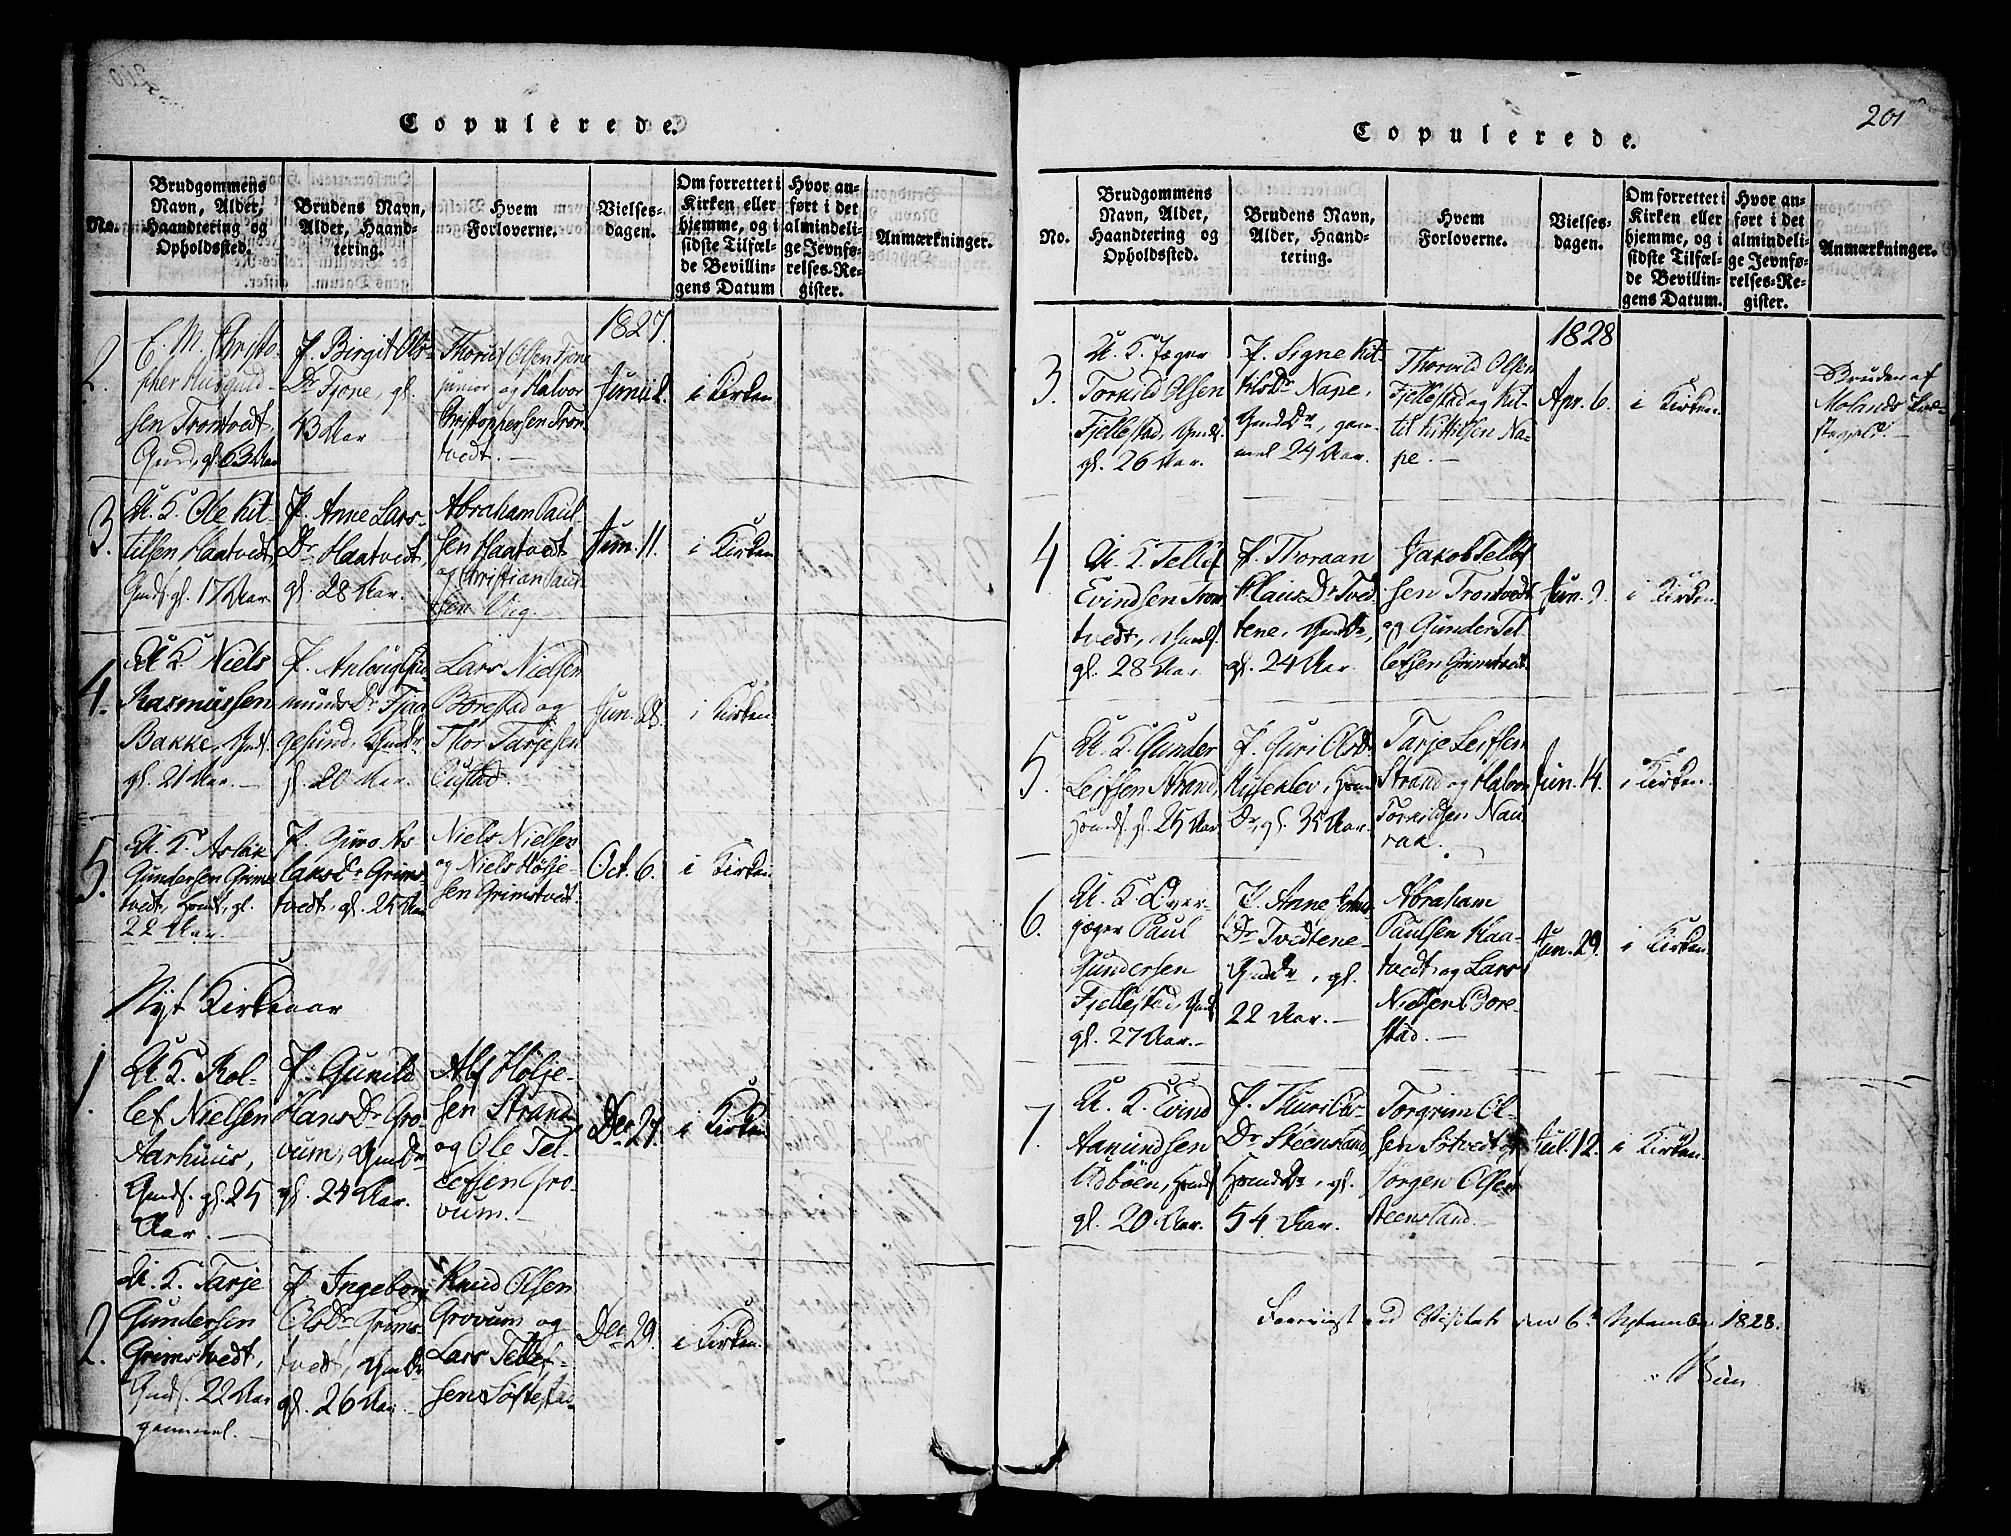 Copulerede.
No.
Brudgommens
Navn, Alder,
Haandtering og
Opholdssted.
Brudens Navn,
Alder, Haand-
tering.
Hvem
Forloverne.
Vielses-
dagen.
Om forrettet i
Kirken eller
hjemme, og i
sidste Tilfæl-
de Bevillin-
gens Datum
Hvor an-
ført i det
almindeli-
ge Jevnfø-
relses-Re-
gister.
Anmærkninger.
2.
E. M. Christo-
pher
sen Trontvedt,
gl. 63 Aar
P. Birgit Ols-
Dr Fjone, gl.
43 Aar
Olsen Fjone
junior og Halvor
Christophersen Tron-
tvedt.
1827.
Junii 2.
i Kirken
3.
U. K. Ole Kit-
tilsen Haatvedt,
gl. 17 Aar.
P. Anne Lars-
Dr Haatvedt,
gl. 28 Aar.
Abraham Paul-
sen Haatvedt
og Christian Paul-
sen Vig.
Jun. 11.
i Kirken
4.
U. K. Niels
Rasmussen
Bakke,
gl. 21 Aar.
P.
munds Dr Fjaa-
gesund,
gl. 20 Aar.
Lars Nielsen
Borestad og
Thor Tarjesen
Jun. 28.
i Kirken
5.
U. K. Aslak
Gundersen Grims-
tvedt, gl.
22 Aar.
P. Guro As-
laks Dr Grims-
tvedt, gl. 25 Aar
Niels Nielsen
og Niels Høljе-
sen Grimstvedt.
Oct. 6.
i Kirken
Nyt Kirkeaar
1.
U. K. Rol-
lef Nielsen
Aarhuus,
gl. 25
Aar.
P. Gunild
Hans Dr Gro-
vum,
gl. 24 Aar.
Alf Hølje-
sen Strand
og Ole Tel-
lefsen Gro-
vum.
Dec. 27.
i Kirken
2.
U. K. Tarje
Gundersen
Grimstvedt,
22 Aar
gammel.
P. Ingeborg
Ols Dr Grims-
tvedt,
gl. 26 Aar
Knud Olsen
Grovum og
Lars Tellef-
sen Søftestad
Dec. 29.
i Kirken.
201
Copulerede.
No.
Brudgommens
Navn, Alder,
Haandtering og
Opholdssted.
Brudens Navn,
Alder, Haand-
tering.
Hvem
Forloverne.
Vielses-
dagen.
Om forrettet i
Kirken eller
hjemme, og i
sidste Tilfæl-
de Bevillin-
gens Datum.
Hvor an-
ført i det
almindeli-
ge Jevnfø-
relses-Re-
gister.
Anmærkninger.
3.
U. K. Jæger
Torkild Olsen
Fjellestad,
gl. 26 Aar.
P. Signe Kit-
tils Dr Nape,
gam-
mel 24 Aar.
Olsen
Fjellestad og Kit-
til Kittilsen Na-
pe.
1828
Apr. 6.
i Kirken.
Bruden af
Molands Præ-
stegjeld.
4
U. K. Tellef
Evindsen Tron-
tvedt,
gl. 28 Aar
P. Thoraan
Klaus Dr Tved-
tene,
gl. 24 Aar.
Jakob Tellef-
sen Trontvedt
og Gunder Tel-
lefsen Grimstvedt
Jun.
i Kirken.
5.
U. K. Gunder
Leifsen Strand,
gl. 25 Aar
P. Guri Ols Dr
Dr, gl. 35 Aar.
Tarje Leifsen
Strand og Halvor
Torkildsen Nau-
rak.
Jun. 14.
i Kirken.
6.
U. K. Over-
jæger Paul
Gundersen
Fjellestad,
gl. 27 Aar.
P. Anne
Dr Tvedtene
gl.
22 Aar.
Abraham
Paulsen Haa-
tvedt og Lars
Nielsen Bore-
stad.
Jun. 29.
i Kirken.
7.
U. K. Evind
Aamundsen
gl. 20 Aar.
P. Thuri Ols-
Dr Steensland,
gl.
54 Aar.
Torgrim Ol-
sen Søtvedt og
Jørgen Olsen
Steensland.
Jul. 12.
i Kirken.
ved Visitats den 6te September 1828.